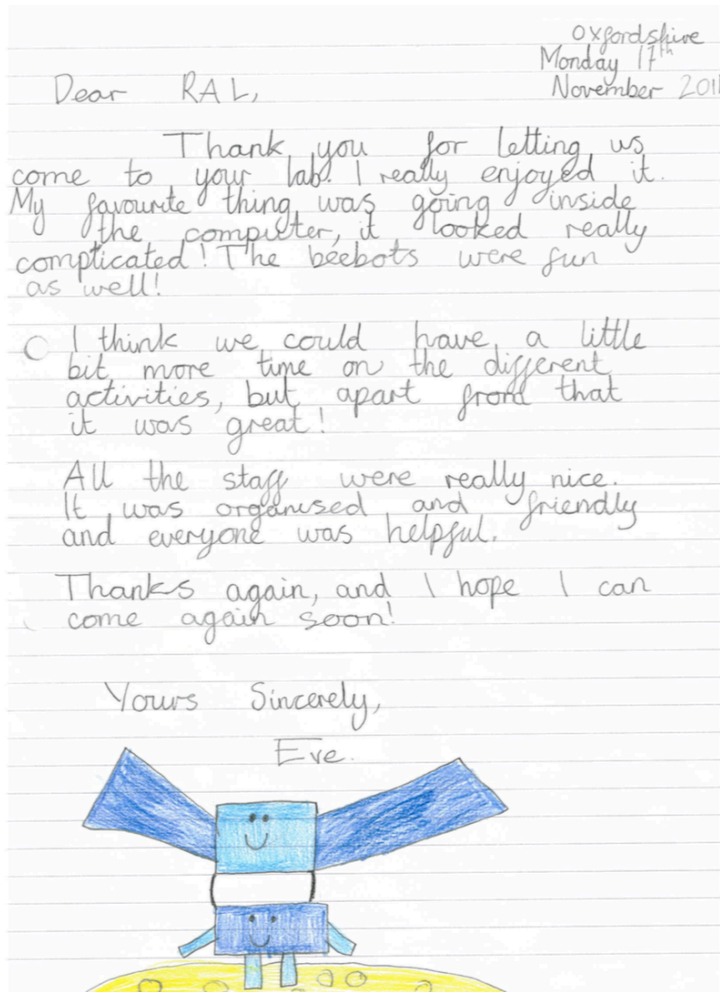 Oxfordshire
Monday 17th
November 201
Dear RAL,
Thank you for letting us
come to your lab! I really enjoyed it.
My favourite thing was going inside
the computer, it looked really
complicated! The beebots were fun
as well!
I think we could have a little
bit more time on the different
activities, but apart from that
it was great!
All the staff were really nice.
It was organised and friendly
and everyone was helpful.
Thanks again, and I hope I can
come again soon!
Yours Sincerely,
Eve.